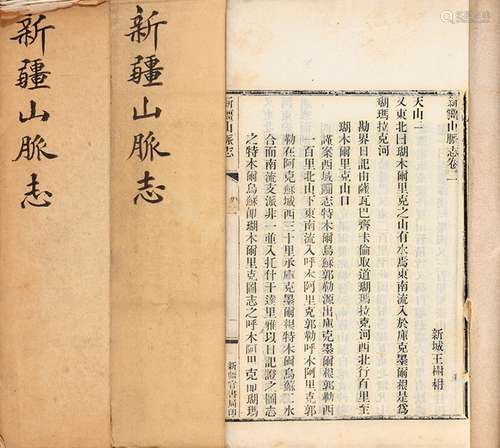 新疆山脈志
新疆山脈志
新疆山脈志卷一
新城王樹枏
天山二
又東北曰瑚木爾里克之山有水焉東南流入於庫克墨爾根是為
瑚瑪拉克河
勘界日記由薩瓦巴齊卡倫取道瑚瑪拉克河西北行百里至
瑚木爾里克山口
謹案西域圖志特木爾烏蘇郭勒源出庫克墨爾根郭勒
一百里北山下東南流入呼木阿里克郭勒呼木阿里克郭
勒在阿克蘇城西三十里承庫克墨爾根特木爾烏蘇二水
合而南流支派非一並入托什干達里雅以日記證之圖志
之特木爾烏蘇即瑚木爾里克圖志之呼木阿里克即瑚瑪
新疆山脈志
新疆官書局印